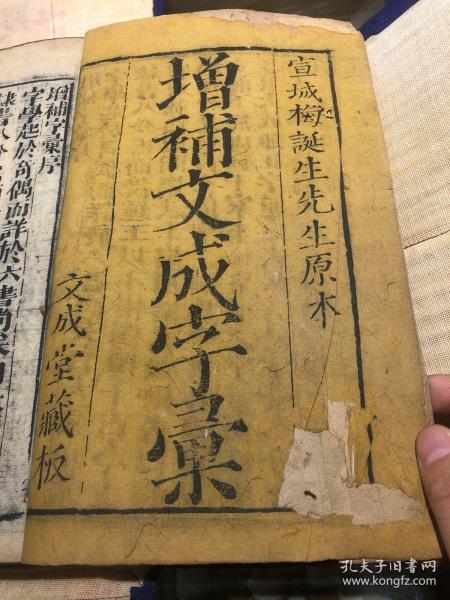 宣城梅誕生先生原本
增補文成字彙
文成堂藏板
增補字彙序
字學起於奇偶而詳於六書尚矣
隸書八分
孔夫子旧书网
www.kongfz.com